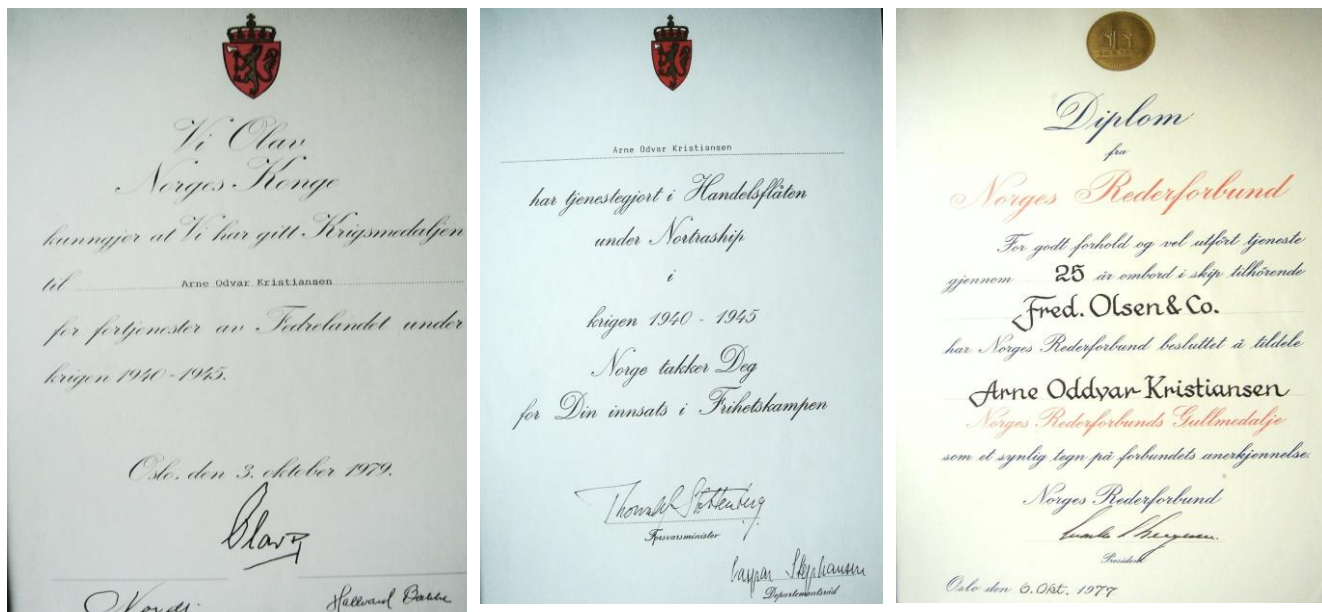 Vi Olav
Norges Konge
kunngjør at Vi har gitt Krigsmedaljen
til Arne Odvar Kristiansen
for fortjenester av Fedrelandet under
krigen 1940-1945.
Oslo, den 3. oktober 1979.
Olav R
Hallvard Bakke
Arne Odvar Kristiansen
har tjenestegjort i Handelsflåten
under Nortraship
i
krigen 1940 - 1945
Norge takker Deg
for Din innsats i Frihetskampen
Thorvald Stoltenberg
Forsvarsminister
Caspar Stephansen
Departementsråd
Diplom
fra
Norges Rederforbund
For godt forhold og vel utført tjeneste
gjennom 25 år ombord i skip tilhörende
Fred. Olsen & Co.
har Norges Rederforbund besluttet å tildele
Arne Oddvar Kristiansen
Norges Rederforbunds Gullmedalje
som et synlig tegn på forbundets anerkjennelse.
Norges Rederforbund
President
Oslo den 6. Okt. 1977